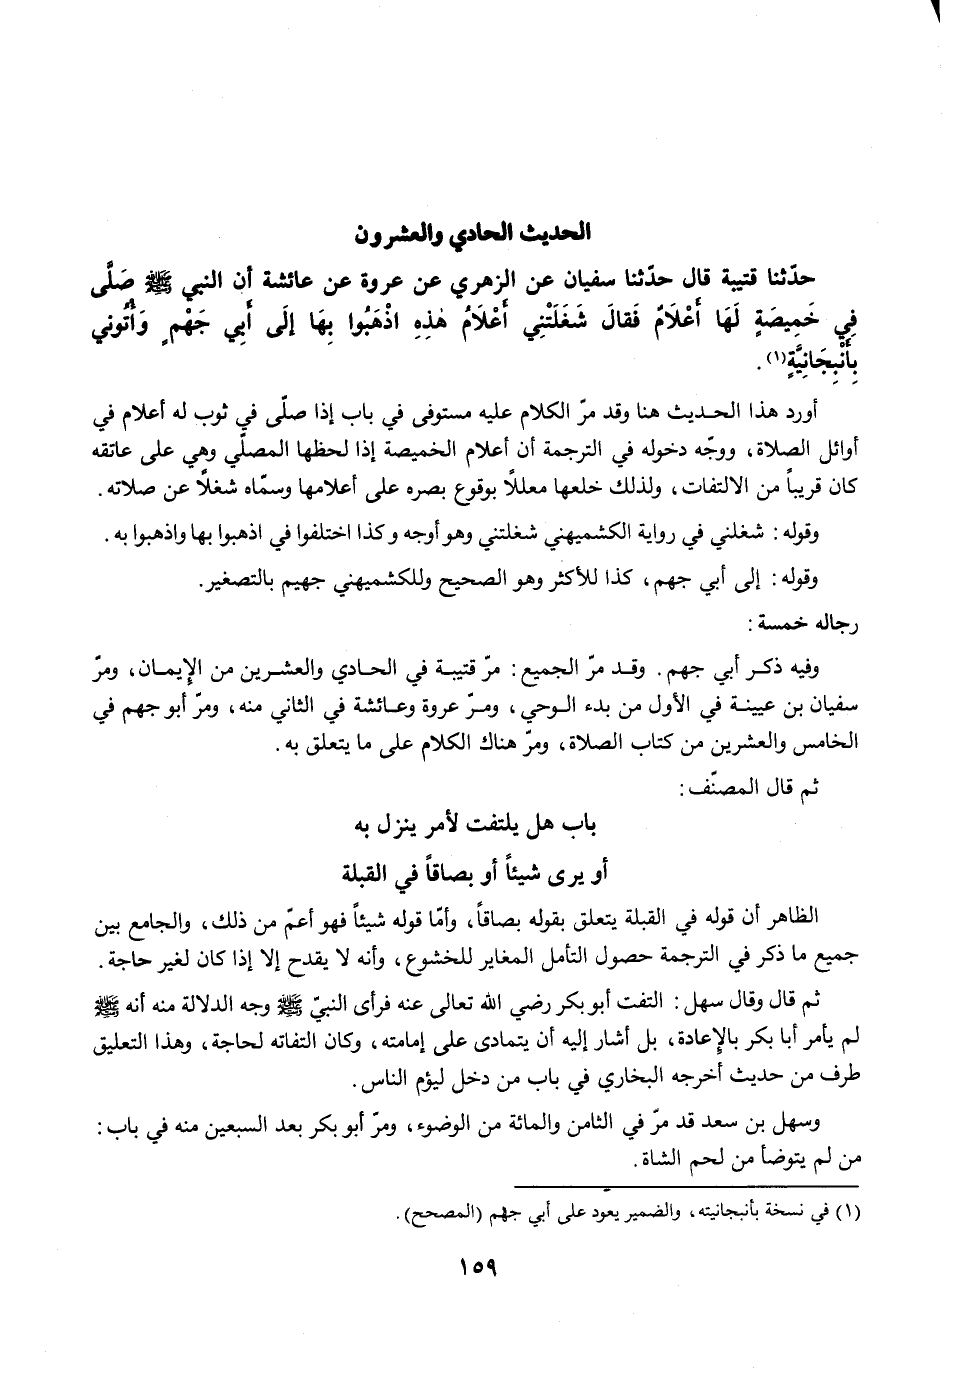 الحديث الحادي والعشرون
حدّثنا قتيبة قال حدّثنا سفيان عن الزهري عن عروة عن عائشة أن النبي ﷺ صَلَّى
فِي خَمِيصَةٍ لَهَا أَعْلَامٌ فَقالَ شَغَلَتْنِي أَعْلَامُ هٰذِهِ اذْهَبُوا بِهَا إلَى أَبِي جَهْمٍ وَأْتُونِي
بِأَنْبِجَانِيَّةٍ(١).
أورد هذا الحديث هنا وقد مرّ الكلام عليه مستوفى في باب إذا صلّى في ثوب له أعلام في
أوائل الصلاة، ووجّه دخوله في الترجمة أن أعلام الخميصة إذا لحظها المصلّي وهي على عاتقه
كان قريباً من الالتفات، ولذلك خلعها معللاً بوقوع بصره على أعلامها وسمّاه شغلاً عن صلاته.
وقوله: شغلني في رواية الكشميهني شغلتني وهو أوجه وكذا اختلفوا في اذهبوا بها واذهبوا به.
وقوله: إلى أبي جهم، كذا للأكثر وهو الصحيح وللكشميهني جهيم بالتصغير.
رجاله خمسة:
وفيه ذكر أبي جهم. وقد مرّ الجميع: مرّ قتيبة في الحادي والعشرين من الإيمان، ومرّ
سفيان بن عيينة في الأول من بدء الوحي، ومرّ عروة وعائشة في الثاني منه، ومرّ أبو جهم في
الخامس والعشرين من كتاب الصلاة، ومرّ هناك الكلام على ما يتعلق به.
ثم قال المصنّف:
باب هل يلتفت لأمر ينزل به
أو يرى شيئاً أو بصاقاً في القبلة
الظاهر أن قوله في القبلة يتعلق بقوله بصاقاً، وأمّا قوله شيئاً فهو أعمّ من ذلك، والجامع بين
جميع ما ذكر في الترجمة حصول التأمل المغاير للخشوع، وأنه لا يقدح إلا إذا كان لغير حاجة.
ثم قال وقال سهل: التفت أبو بكر رضي الله تعالى عنه فرأى النبيّ ﷺ وجه الدلالة منه أنه ﷺ
لم يأمر أبا بكر بالإعادة، بل أشار إليه أن يتمادى على إمامته، وكان التفاته لحاجة، وهذا التعليق
طرف من حديث أخرجه البخاري في باب من دخل ليؤم الناس.
وسهل بن سعد قد مرّ في الثامن والمائة من الوضوء، ومرّ أبو بكر بعد السبعين منه في باب:
من لم يتوضأ من لحم الشاة.
(١) في نسخة بأنبجانيته، والضمير يعود على أبي جهم (المصحح).
١٥٩